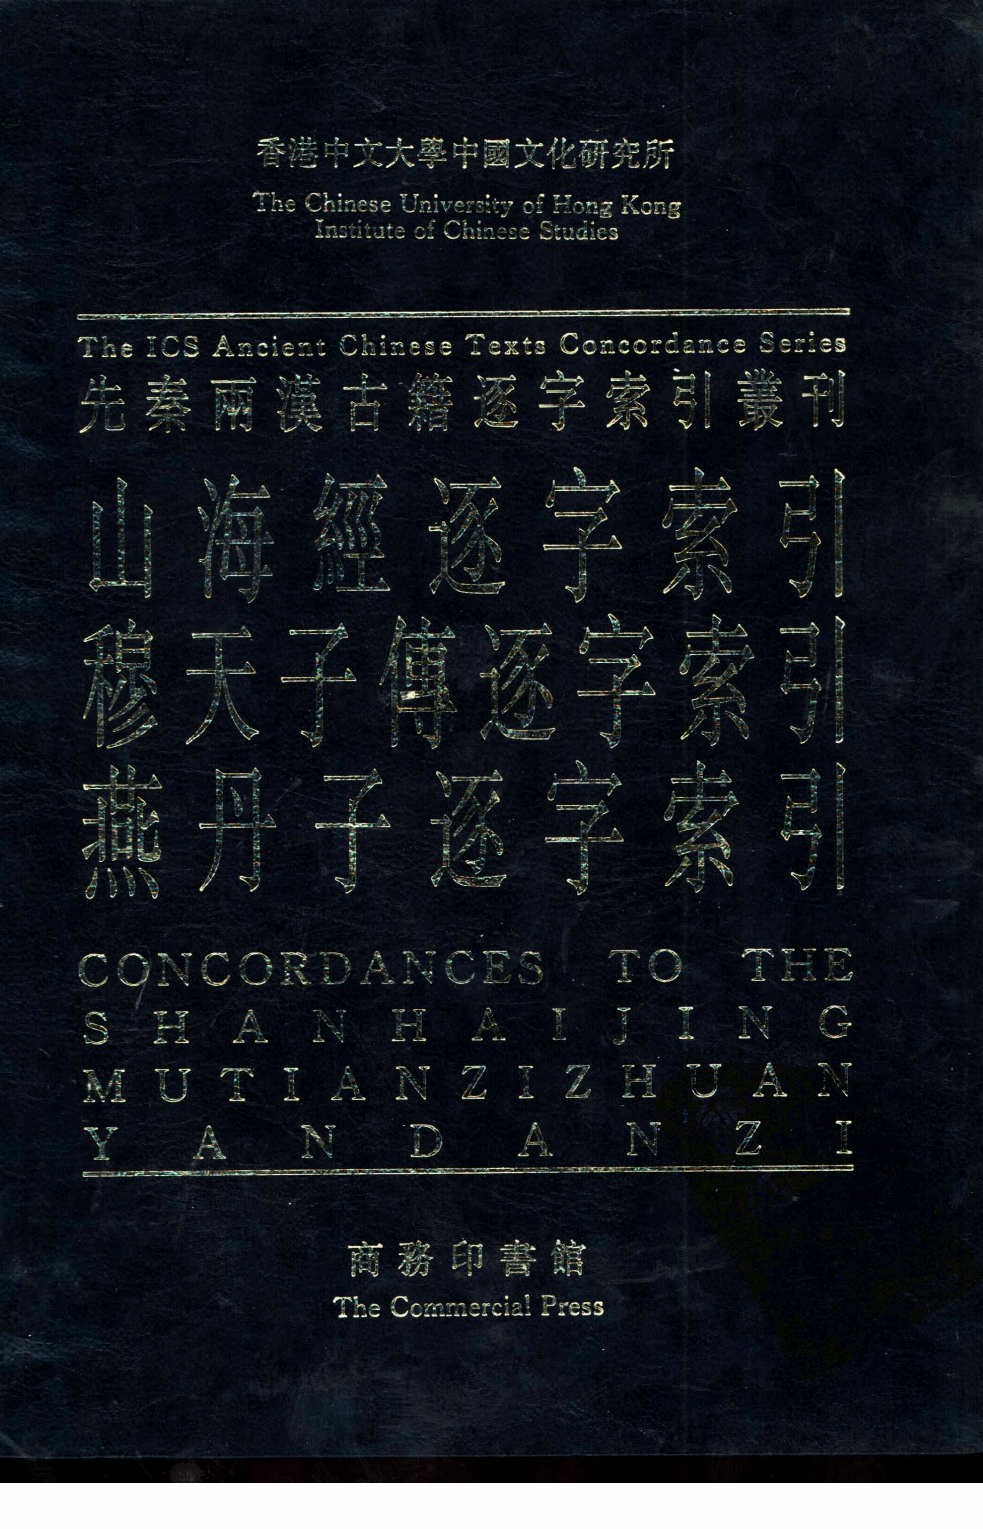 香港中文大學中國文化研究所
The Chinese University of Hong Kong
Institute of Chinese Studies
The ICS Ancient Chinese Texts Concordance Series
先秦兩漢古籍逐字索引叢刊
山海經逐字索引
穆天子傳逐字索引
燕丹子逐字索引
CONCORDANCES TO THE
SHANHAIJING
MUTIANZIZHUAN
YANDANZI
商務印書館
The Commercial Press